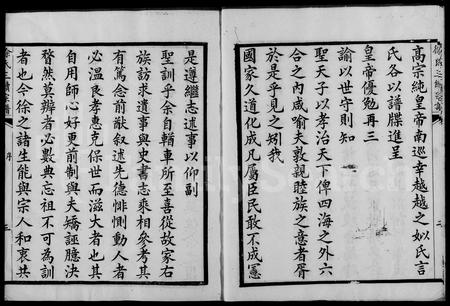 高宗純皇帝南巡幸越越之姒氏言
氏各以譜牒進呈
皇帝優勉再三
諭以世守則知
聖天子以孝治天下俾四海之外六
合之內咸喻夫敦親睦族之意者胥
於是乎見之矧我
國家久道化成凡屬臣民敢不成憲
是遵繼志述事以仰副
聖訓乎余自輶車所至喜從故家右
族訪求遺事與史書志乘相參考其
有篤念前猷叙述先德悱惻動人者
必溫良孝惠克保世而滋大者也其
自用師心好更前制與夫矯誣臆決
瞀然莫辨者必數典忘祖不可為訓
者也今徐之諸生能與宗人和衷共
序